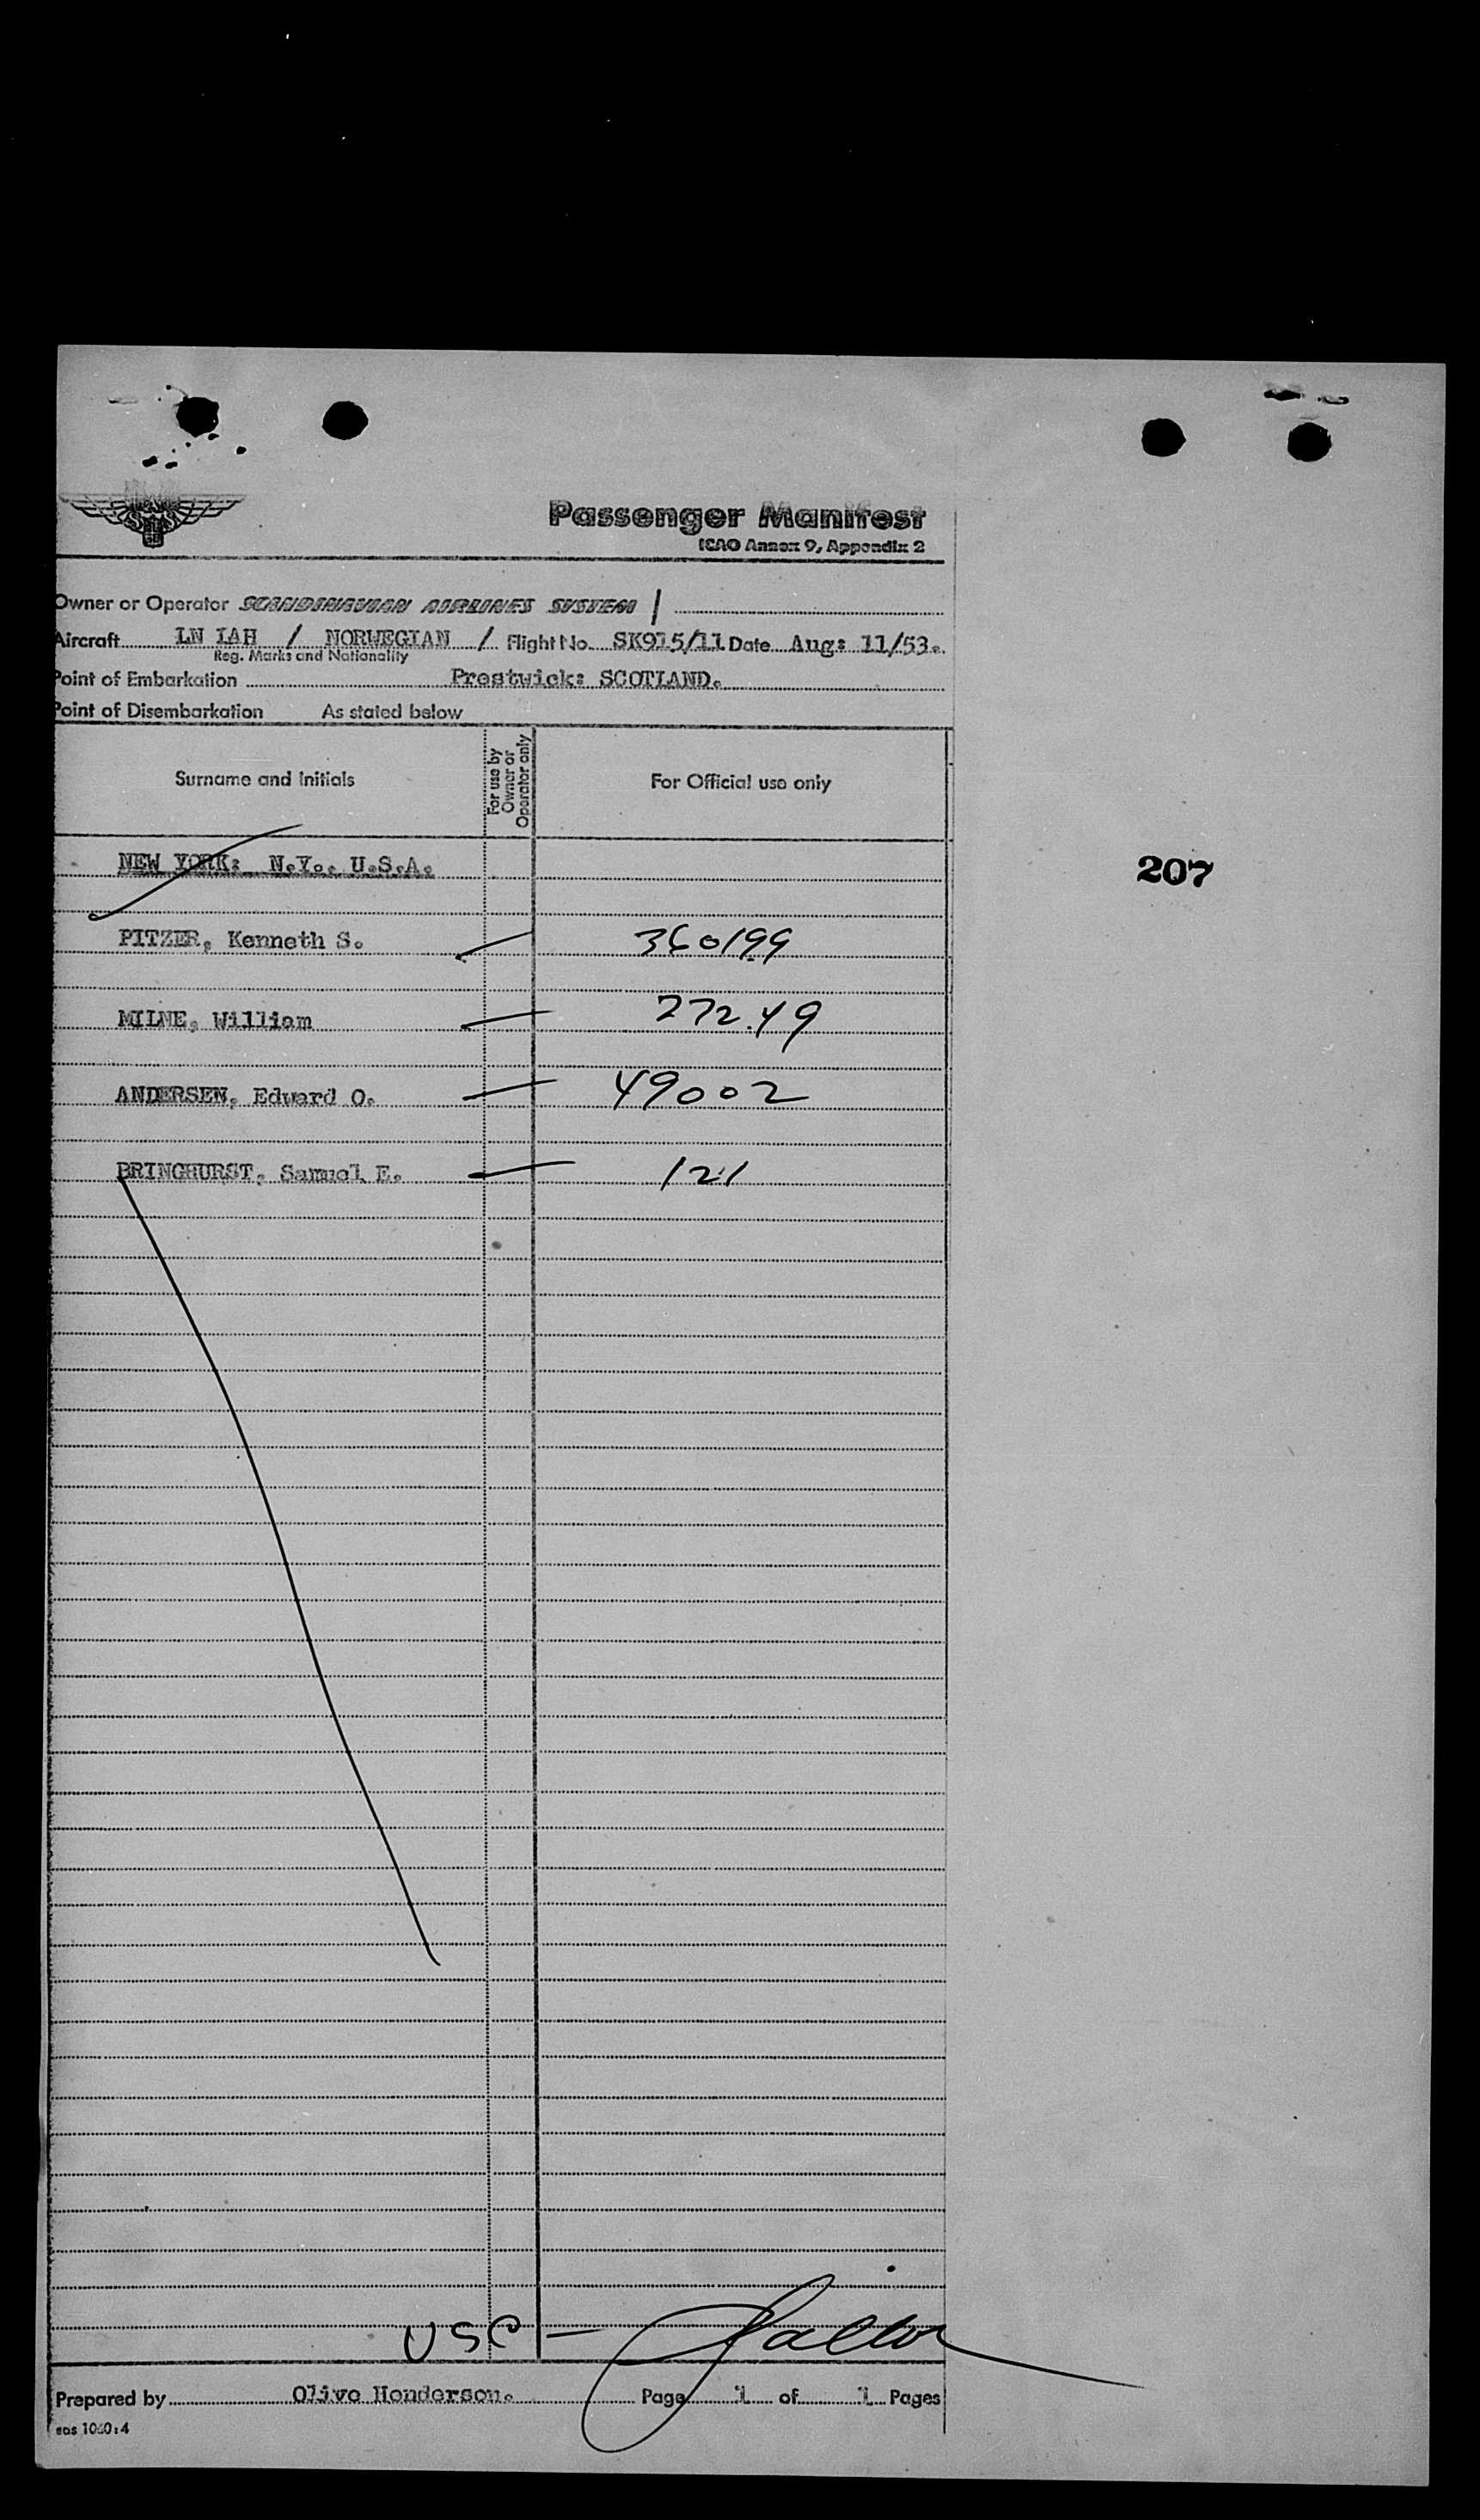 SAS
Passenger Manifest
ICAO Annex 9, Appendix 2
Owner or Operator SCANDINAVIAN AIRLINES SYSTEM /
Aircraft LN IAH / NORWEGIAN / Flight No. SK915/11 Date Aug: 11/53.
Reg. Marks and Nationality
Point of Embarkation Prestwick: SCOTLAND.
Point of Disembarkation As stated below
Surname and Initials For use by Owner or Operator only For Official use only
NEW YORK: N.Y., U.S.A.
207
PITZER, Kenneth S. 360199
MILNE, William 27249
ANDERSEN, Edward O. 49002
BRINGHURST, Samuel E. 121
USC -
Prepared by Olive Henderson. Page 1 of 1 Pages